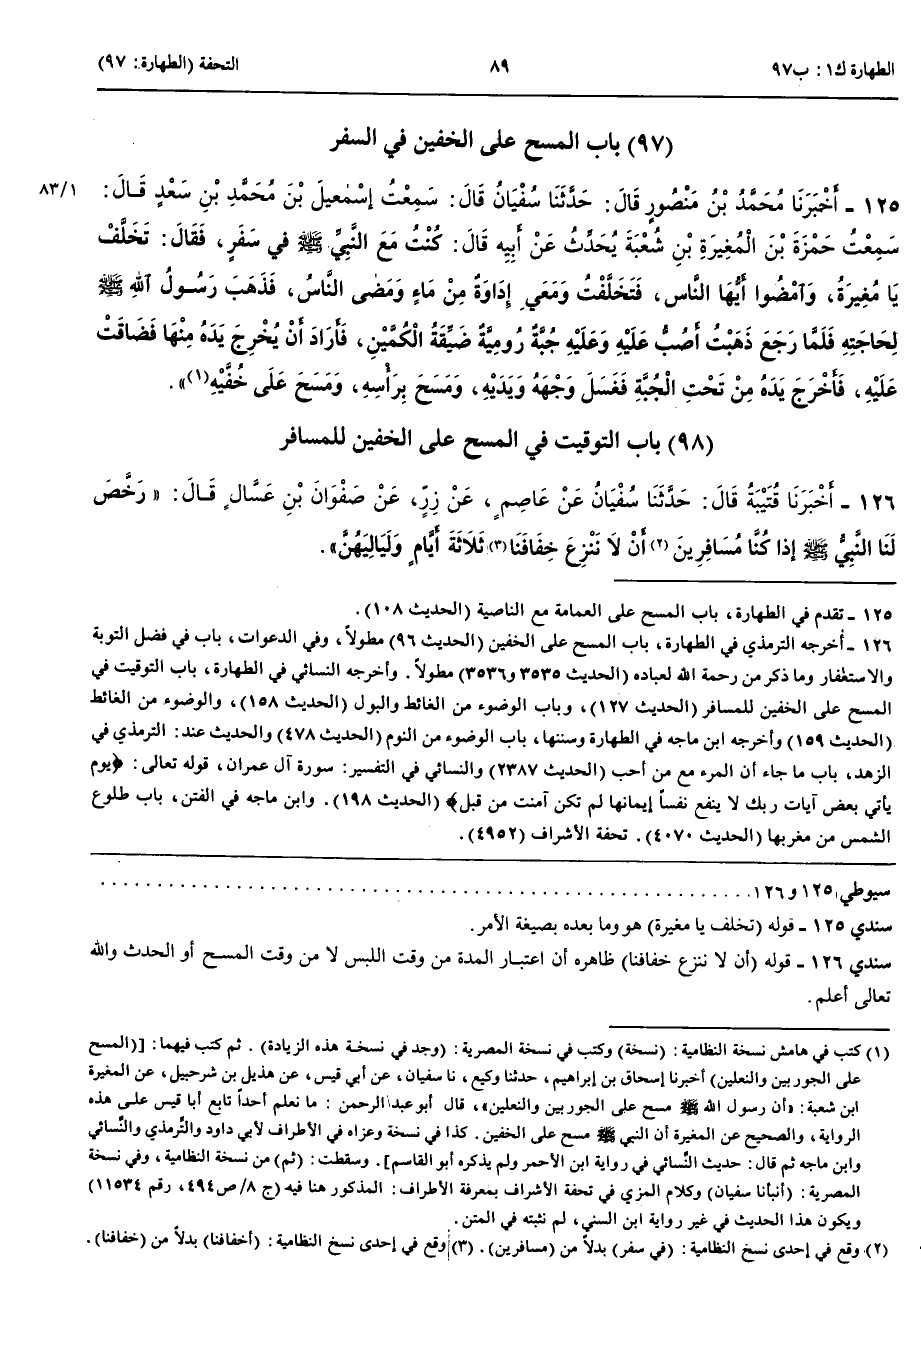 الطهارة ك١ : ب٩٧
٨٩
التحفة (الطهارة : ٩٧)
(٩٧) باب المسح على الخفين في السفر
١٢٥ ـ أَخْبَرَنَا مُحَمَّدُ بْنُ مَنْصُورٍ قَالَ : حَدَّثَنَا سُفْيَانُ قَالَ : سَمِعْتُ إِسْمٰعِيلَ بْنَ مُحَمَّدِ بْنِ سَعْدٍ قَـالَ :
٨٣/١
سَمِعْتُ حَمْزَةَ بْنَ الْمُغِيرَةِ بْنِ شُعْبَةَ يُحَدِّثُ عَنْ أَبِيهِ قَالَ : كُنْتُ مَعَ النَّبِيِّ ﷺ في سَفَرٍ ، فَقَالَ : تَخَلَّفْ
يَا مُغِيرَةُ ، وَٱمْضُوا أَيُّهَا النَّاس ، فَتَخَلَّفْتُ وَمَعِي إِدَاوَةٌ مِنْ مَاءٍ وَمَضَى النَّاسُ ، فَذَهَبَ رَسُولُ اللهِ ﷺ
لِحَاجَتِهِ فَلَمَّا رَجَعَ ذَهَبْتُ أَصُبُّ عَلَيْهِ وَعَلَيْهِ جُبَّةٌ رُومِيَّةٌ ضَيِّقَةُ الْكُمَّيْنِ ، فَأَرَادَ أَنْ يُخْرِجَ يَدَهُ مِنْهَا فَضَاقَتْ
عَلَيْهِ ، فَأَخْرَجَ يَدَهُ مِنْ تَحْتِ الْجُبَّةِ فَغَسَلَ وَجْهَهُ وَيَدَيْهِ ، وَمَسَحَ بِرَأْسِهِ ، وَمَسَحَ عَلَى خُفَّيْهِ(١)» .
(٩٨) باب التوقيت في المسح على الخفين للمسافر
١٢٦ ـ أَخْبَرَنَا قُتَيْبَةُ قَالَ : حَدَّثَنَا سُفْيَانُ عَنْ عَاصِمٍ ، عَنْ زِرٍّ ، عَنْ صَفْوَانَ بْنِ عَسَّالٍ قَـالَ : « رَخَّصَ
لَنَا النَّبِيُّ ﷺ إذا كُنَّا مُسَافِرِينَ (٢) أَنْ لَا نَنْزِعَ خِفَافَنَا (٣) ثَلَاثَةَ أَيَّامٍ وَلَيَالِيَهُنَّ» .
١٢٥ ـ تقدم في الطهارة ، باب المسح على العمامة مع الناصية (الحديث ١٠٨) .
١٢٦ ـ أخرجه الترمذي في الطهارة ، باب المسح على الخفين (الحديث ٩٦) مطولاً ، وفي الدعوات ، باب في فضل التوبة
والاستغفار وما ذكر من رحمة الله لعباده (الحديث ٣٥٣٥ و٣٥٣٦) مطولاً . وأخرجه النسائي في الطهارة ، باب التوقيت في
المسح على الخفين للمسافر (الحديث ١٢٧) ، وباب الوضوء من الغائط والبول (الحديث ١٥٨) ، والوضوء من الغائط
(الحديث ١٥٩) وأخرجه ابن ماجه في الطهارة وسننها ، باب الوضوء من النوم (الحديث ٤٧٨) والحديث عند : الترمذي في
الزهد ، باب ما جاء أن المرء مع من أحب (الحديث ٢٣٨٧) والنسائي في التفسير : سورة آل عمران ، قوله تعالى : ﴿يوم
يأتي بعض آيات ربك لا ينفع نفساً إيمانها لم تكن آمنت من قبل﴾ (الحديث ١٩٨) . وابن ماجه في الفتن ، باب طلوع
الشمس من مغربها (الحديث ٤٠٧٠) . تحفة الأشراف (٤٩٥٢) .
سيوطي ١٢٥ و ١٢٦ ........................................
سندي ١٢٥ ـ قوله (تخلف يا مغيرة) هو وما بعده بصيغة الأمر .
سندي ١٢٦ ـ قوله (أن لا ننزع خفافنا) ظاهره أن اعتبـار المدة من وقت اللبس لا من وقت المسـح أو الحدث والله
تعالى أعلم .
(١) كتب في هامش نسخة النظامية : (نسخة) وكتب في نسخة المصرية : (وجد في نسخـة هذه الزيادة) . ثم كتب فيهما : [(المسح
على الجوربين والنعلين) أخبرنا إسحاق بن إبراهيم ، حدثنا وكيع ، نا سفيان ، عن أبي قيس ، عن هذيل بن شرحبيل ، عن المغيرة
ابن شعبة : «أن رسول الله ﷺ مسح على الجوربين والنعلين» ، قال أبو عبد الرحمن : ما نعلم أحداً تابع أبا قيس علـى هذه
الرواية ، والصحيح عن المغيرة أن النبي ﷺ مسح على الخفين . كذا في نسخة وعزاه في الأطراف لأبي داود والتِّرمذي والنَّسائي
وابن ماجه ثم قال : حديث النَّسائي في رواية ابن الأحمر ولم يذكره أبو القاسم] . وسقطت : (ثم) من نسخة النظامية ، وفي نسخة
المصرية : (أنبأنا سفيان) وكلام المزي في تحفة الأشراف بمعرفة الأطراف : المذكور هنا فيه (ج ٨/ص ٤٩٤ ، رقم ١١٥٣٤)
ويكون هذا الحديث في غير رواية ابن السني ، لم نثبته في المتن .
(٢) وقع في إحدى نسخ النظامية : (في سفر) بدلاً من (مسافرين) . (٣) وقع في إحدى نسخ النظامية : (أخفافنا) بدلاً من (خفافنا) .